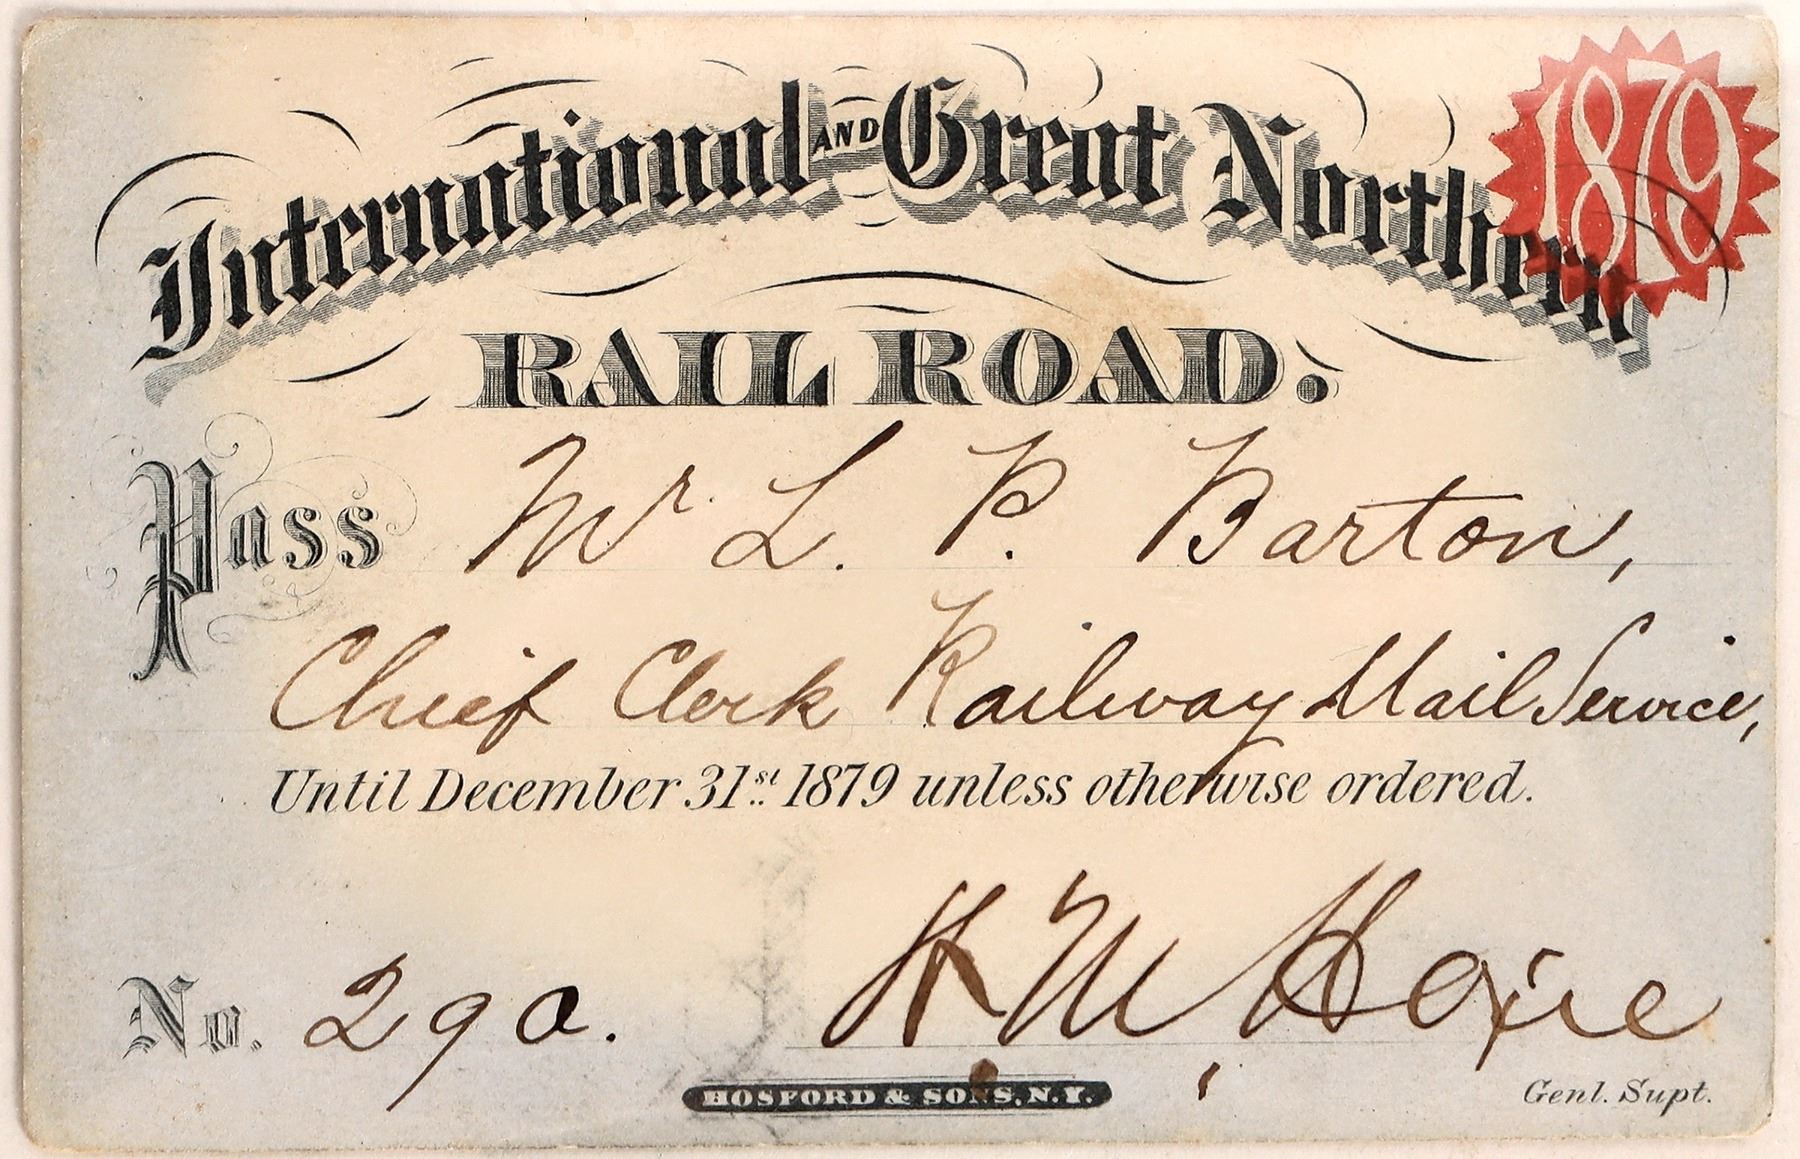 International AND Great Northern
1879
RAIL ROAD.
Pass Mr. L. P. Barton,
Chief Clerk Railway Mail Service,
Until December 31st. 1879 unless otherwise ordered.
No. 290. H. M. Hoxie
HOSFORD & SONS, N.Y.
Genl. Supt.